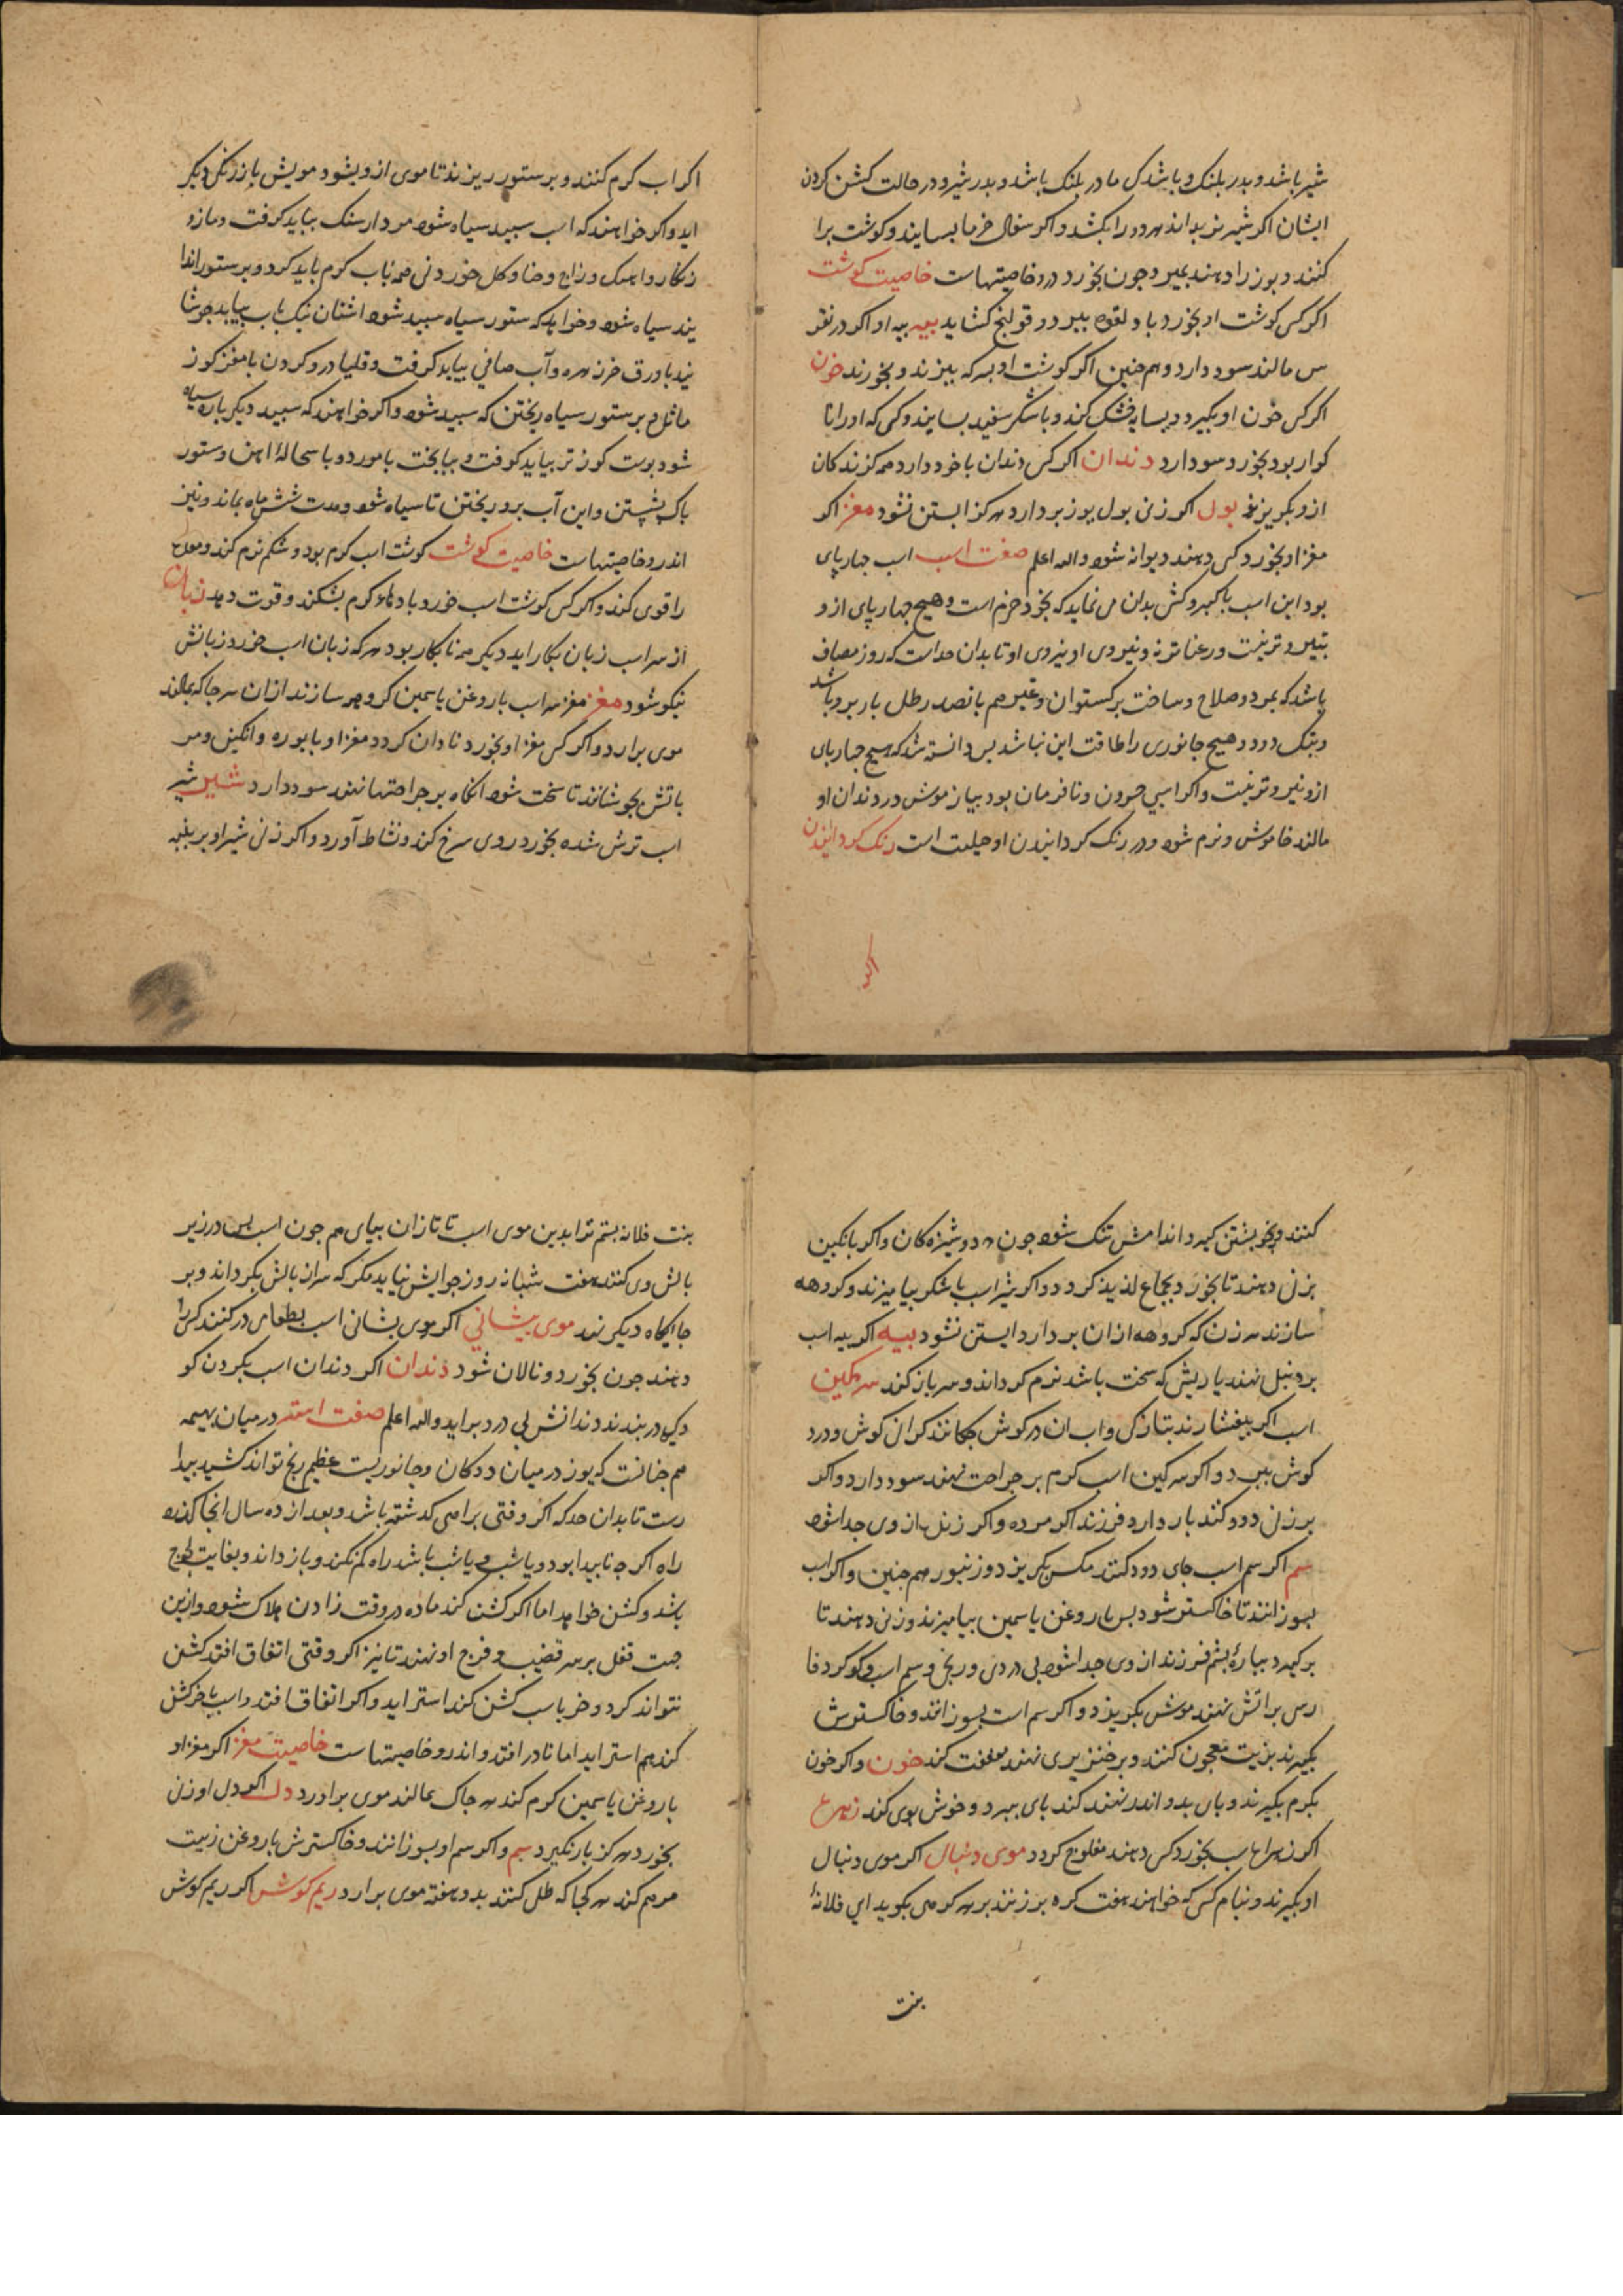 شیر باشد و پدر پلنک و باشد کی مادر پلنک باشد و پدر شیر و در حالت کشن کردن
ایشان اکر شیر نر بداند هر دو را بکشد و اکر سفال خرما بسایند و کوشت برا
کنند و یوز را دهند بمیرد جون بخورد درو خاصیتهاست خاصیت کوشت
اکر کس کوشت او بخورد باد لقوه ببرد و قولنج کشاید پیه پیه او اکر در نقر
س مالند سود دارد و هم جنین اکر کوشت او بسرکه بپزند و بخورند خون
اکر کس خون او بکیرد و بسایه خشک کند و با شکر سفید بسایند و کسی که او را نا
کوار بود بخورد سود دارد دندان اکر کس دندان با خود دارد همه کزندکان
ازو بکریزند بول اکر زنی بول یوز بردارد هرکز ابستن نشود مغز اکر
مغز او بخورد کس دهند دیوانه شود والله اعلم صفت اسب اسب جهارپای
بود این اسب با کبر و کش بدان می نماید که بخود خرم است و هیچ جهارپای ازو
بتیر و تر نیست و رعناتر نه و نیروی او نیروی او تا بدان حد است که روز مصاف
باشد که بمرد و صلاح و ساخت برکستوان و غیر هم بانصد رطل بار برو باشد
و بتک دود و هیچ جانوری را طاقت این نباشد پس دانسته شد که هیچ جهارپای
ازو نیروتر نیست و اکر اسبی حرون و نافرمان بود بیاز موش در دندان او
مالند خاموش و نرم شود و در رنک کردانیدن او حیلت است رنک کردانیدن
اکر
اکر اب کرم کنند و بر ستور ریزند تا موی ازو بشود مویش باز رنکی دیکر
اید و اکر خواهند که اسب سپید سیاه شود مردارسنک بباید کرفت و مازو
زنکار و اهک و زاج و حنا و کل خوردنی همه باب کرم باید کرد و بر ستور اندا
یند سیاه شود و خواهد که ستور سیاه سپید شود اشنان نیک باب بباید جوشا
نید با ورق خرزهره و آب صافی بباید کرفت و قلیا درو کردن با مغز کوز
ماثل و بر ستور سیاه ریختن که سبید شود و اکر خواهند که سبید دیکر باره سیاه
شود پوست کوز تر بباید کوفت و بباید پخت با مورد و با سحاله اهن و ستور
باک بشستن و این آب برو ریختن تا سیاه شود و مدت شش ماه بماند و نیز
اندرو خاصیتهاست خاصیت کوشت کوشت اسب کرم بود و شکم نرم کند و معده
را قوی کند و اکر کس کوشت اسب خورد بادهاء کرم بشکند و قوت دهد زبان
از سر اسب زبان بکار اید دیکر همه نابکار بود هر که زبان اسب خورد زبانش
نیکو شود مغز مغز سر اسب با روغن یاسمین کرو هه سازند ازان هر جا که بمالند
موی برارد و اکر کس مغز او بخورد نادان کردد مغز او با بوره و انکبین و مر
باتش بجوشانند تا سخت شود انکاه بر جراحتها نهند سود دارد شیر شیر
اسب ترش شده بخورد روی سرخ کند و نشاط آورد و اکر زن شیر او بر پنبه
کنند و بخویشتن کیرد اندامش تنک شود جون دوشیزه کان و اکر بانکبین
بزن دهند تا بخورد بجماع لذیذ کردد و اکر شیر اسب با شکر بیامیزند و کروهه
سازند هر زن که کروهه ازان بردارد ابستن نشود پیه اکر پیه اسب
بر دنبل نهند یا ریش که سخت باشد نرم کرداند و سر باز کند سرکین
اسب اکر بیفشارند بتازکی و اب ان در کوش جکانند کرانی کوش و درد
کوش ببرد و اکر سرکین اسب کرم بر جراحت نهند سود دارد و اکر
بر زن دود کنند بار دارد فرزند اکر مرده و اکر زنده از وی جدا شود
سم اکر سم اسب جای دود کنند مکس بکریزد و زنبور هم جنین و اکر اب
بسوزانند تا خاکستر شود پس با روغن یاسمین بیامیزند و زن دهند تا
برکیرد بپاره پشم فرزند از وی جدا شود بی دردی و رنج و سم اسب و کوکرد فا
رسی براتش نهند موش بکریزد و اکر سم است بسوزانند و خاکسترش
بکیرند بزیت معجون کنند و بر خنزیری نهند منفعت کند خون و اکر خون
بکرم بکیرند و پای بدو اندر نهند کند پای ببرد و خوش بوی کند زهره
اکر زهره اسب بخورد کس دهند مفلوج کردد موی دنبال اکر موی دنبال
او بکیرند و بنام کس که خواهند هفت کره برزنند بر هر کرهی بکوید ای فلانه
بنت
بنت فلانه بستم ترا بدین موی اسب تا تازان بیای هم جون اسب پس در زیر
بالش وی کنند هفت شبانه روز جوابش نیاید مکر که سران بالش بکرداند و بر
جایکاه دیکر نهد موی پیشانی اکر موی پیشانی اسب بطعامی درکنند کسی را
دهند جون بخورد و نالان شود دندان اکر دندان اسب بکردن کو
دکی در بندند دندانش بی درد براید والله اعلم صفت استر در میان بهیمه
هم جنانست که یوز در میان ددکان و جانوریست عظیم رنج تواند کشید بیدا
رست تا بدان حد که اکر وقتی براهی کذشته باشد و بعد از ده سال انجا کذرد
راه اکر جه ناپیدا بود و یا شب یا باشد راه کم نکند و باز داند و بغایت لجوج
باشد و کشن خواهد اما اکر کشن کند ماده در وقت زادن هلاک شود و ازین
جهت قفل بر سر قضیب و فرج او نهند تا نیز اکر وقتی اتفاق افتد کشن
نتواند کرد و خر باسب کشن کند استر اید و اکر اتفاق افتد اسب با خر کشن
کند هم استر اید اما نادر افتد و اندرو خاصیتهاست خاصیت مغز اکر مغز او
با روغن یاسمین کرم کند هر جای که بمالند موی براورد دل اکر دل او زن
بخورد هرکز بار نکیرد سم و اکر سم او بسوزانند و خاکسترش با روغن زیت
مرهم کند هر کجا که طلی کنند بدو هفته موی برارد ریم کوش اکر ریم کوش